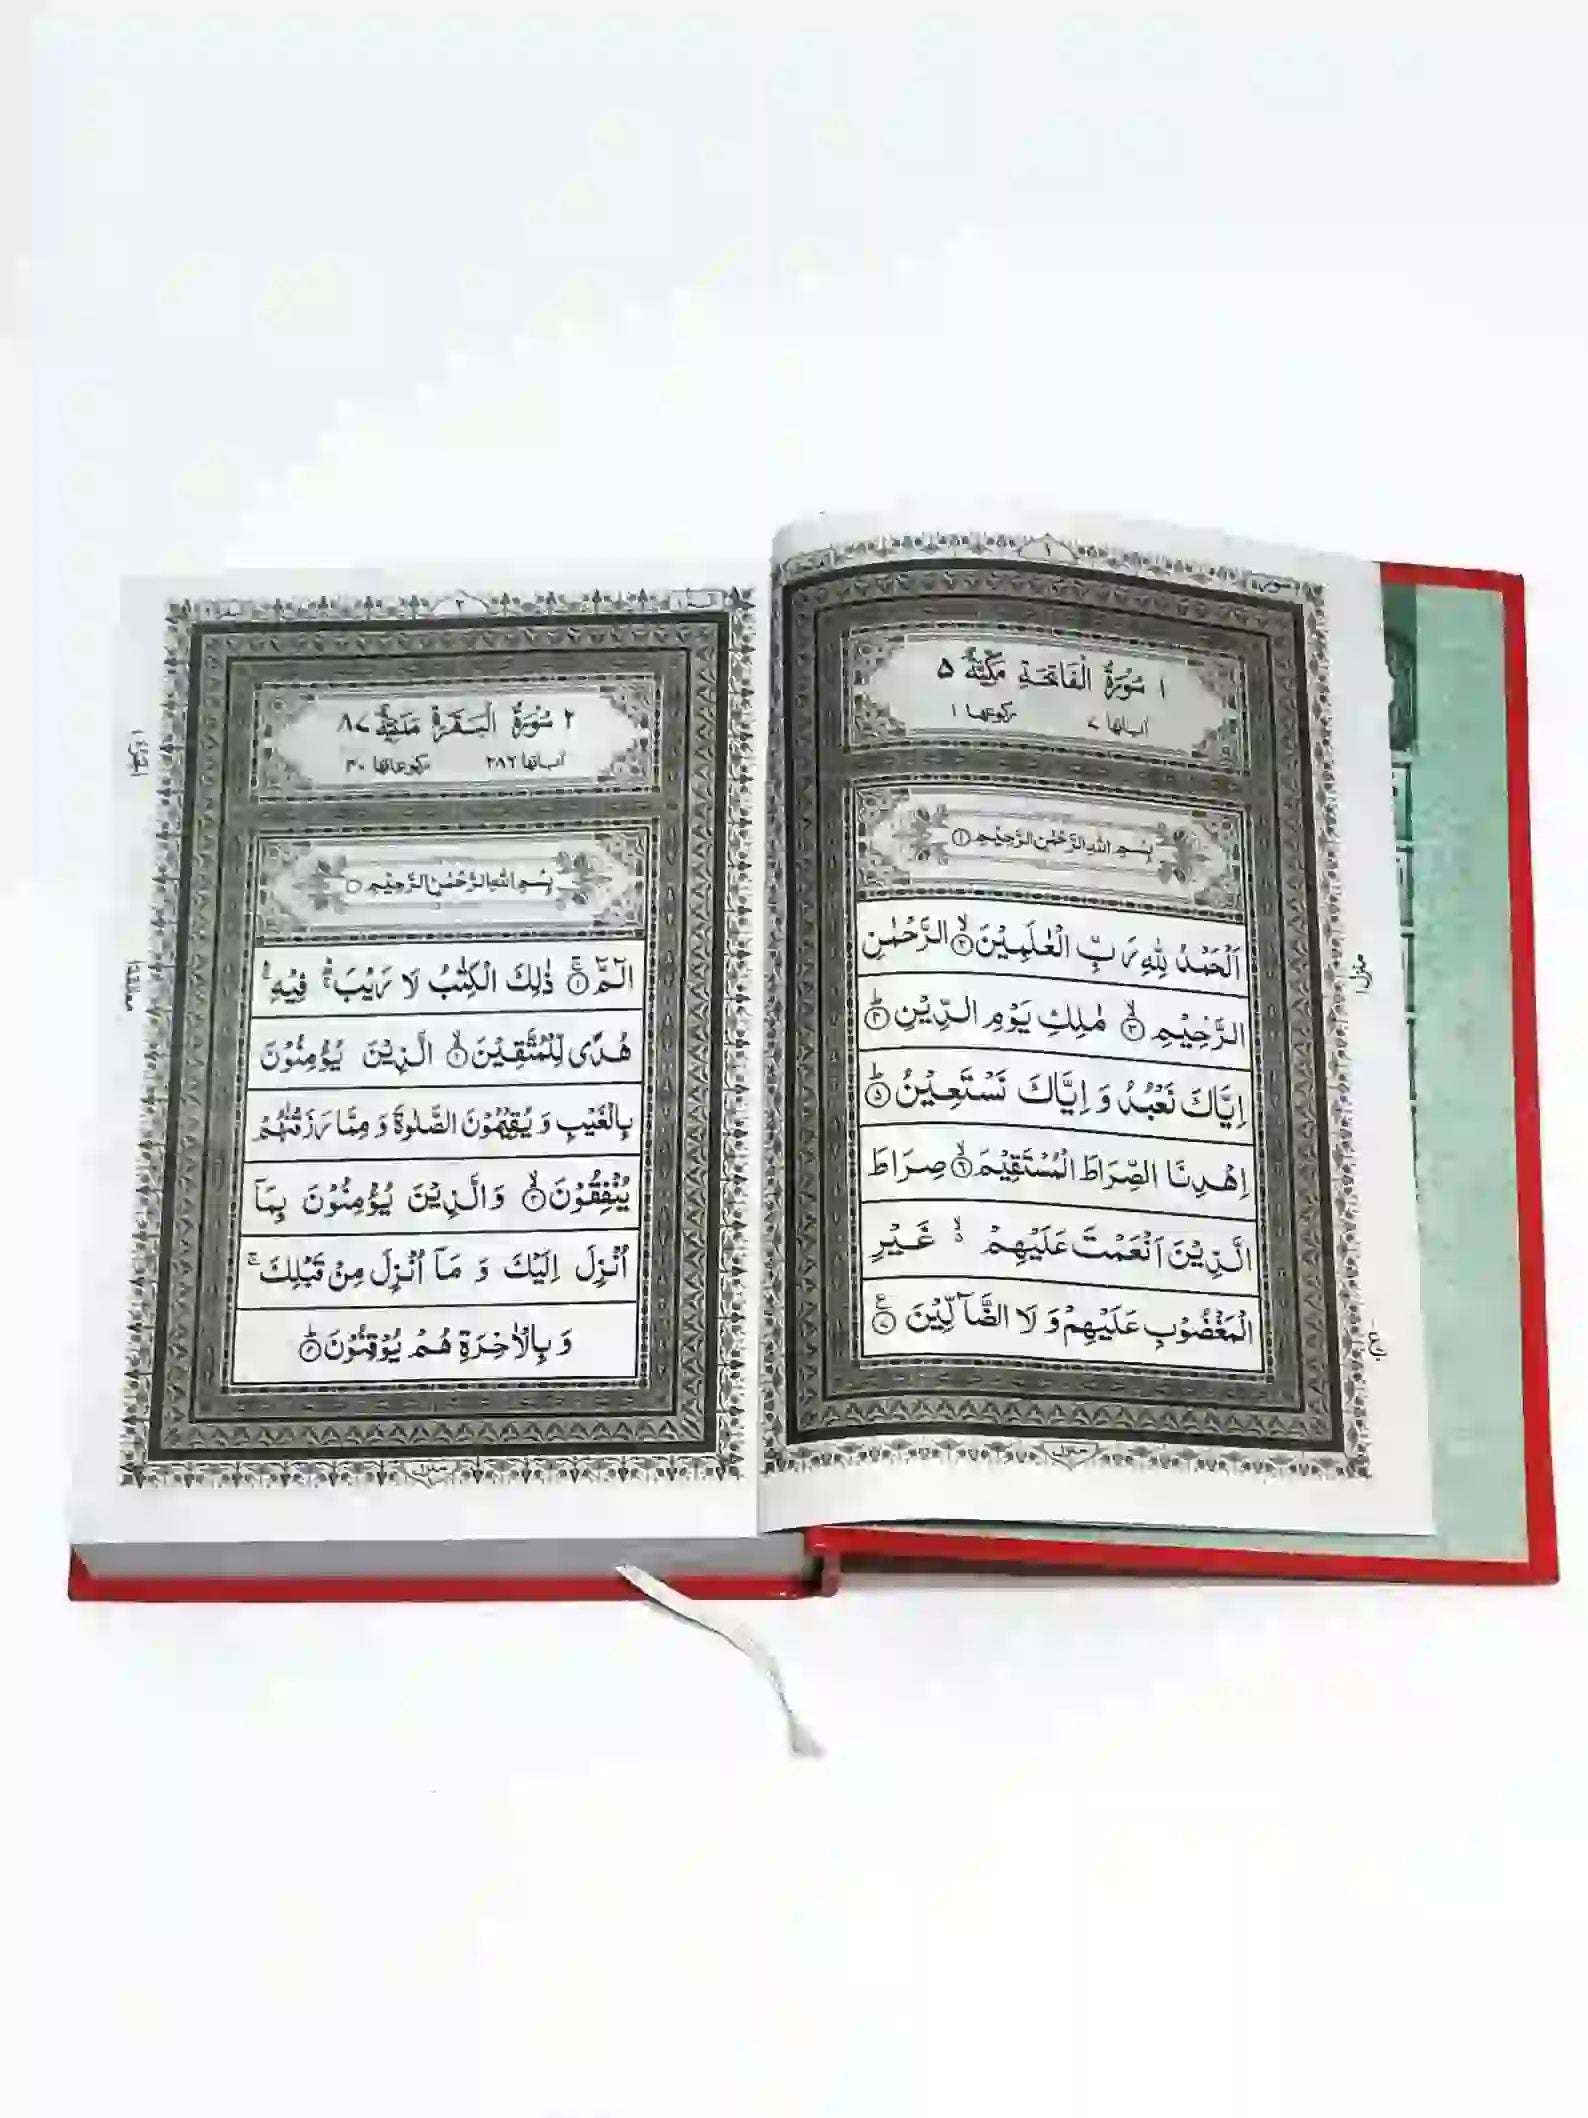 ١
١ سُوْرَةُ الْفَاتِحَةِ مَكِّيَّةٌ ٥
اٰیاتها ٧ رکوعها ١
بِسْمِ اللّٰهِ الرَّحْمٰنِ الرَّحِيْمِ ١
اَلْحَمْدُ لِلّٰهِ رَبِّ الْعٰلَمِيْنَۙ ٢ الرَّحْمٰنِ
الرَّحِيْمِۙ ٣ مٰلِكِ يَوْمِ الدِّيْنِؕ ٤
اِيَّاكَ نَعْبُدُ وَ اِيَّاكَ نَسْتَعِيْنُؕ ٥
اِهْدِنَا الصِّرَاطَ الْمُسْتَقِيْمَۙ ٦ صِرَاطَ
الَّذِيْنَ اَنْعَمْتَ عَلَيْهِمْ ۙ غَيْرِ
الْمَغْضُوْبِ عَلَيْهِمْ وَ لَا الضَّآلِّيْنَ ٧
منزل ١
منزل
٢
٢ سُوْرَةُ الْبَقَرَةِ مَدَنِيَّةٌ ٨٧
اٰیاتها ٢٨٦ رکوعاتها ٤٠
بِسْمِ اللّٰهِ الرَّحْمٰنِ الرَّحِيْمِ
الٓمّٓۚ ١ ذٰلِكَ الْكِتٰبُ لَا رَيْبَ ۛۚ فِيْهِ ۛۚ
هُدًى لِّلْمُتَّقِيْنَۙ ٢ الَّذِيْنَ يُؤْمِنُوْنَ
بِالْغَيْبِ وَ يُقِيْمُوْنَ الصَّلٰوةَ وَ مِمَّا رَزَقْنٰهُمْ
يُنْفِقُوْنَۙ ٣ وَ الَّذِيْنَ يُؤْمِنُوْنَ بِمَآ
اُنْزِلَ اِلَيْكَ وَ مَآ اُنْزِلَ مِنْ قَبْلِكَ ۚ
وَ بِالْاٰخِرَةِ هُمْ يُوْقِنُوْنَؕ ٤
منزل